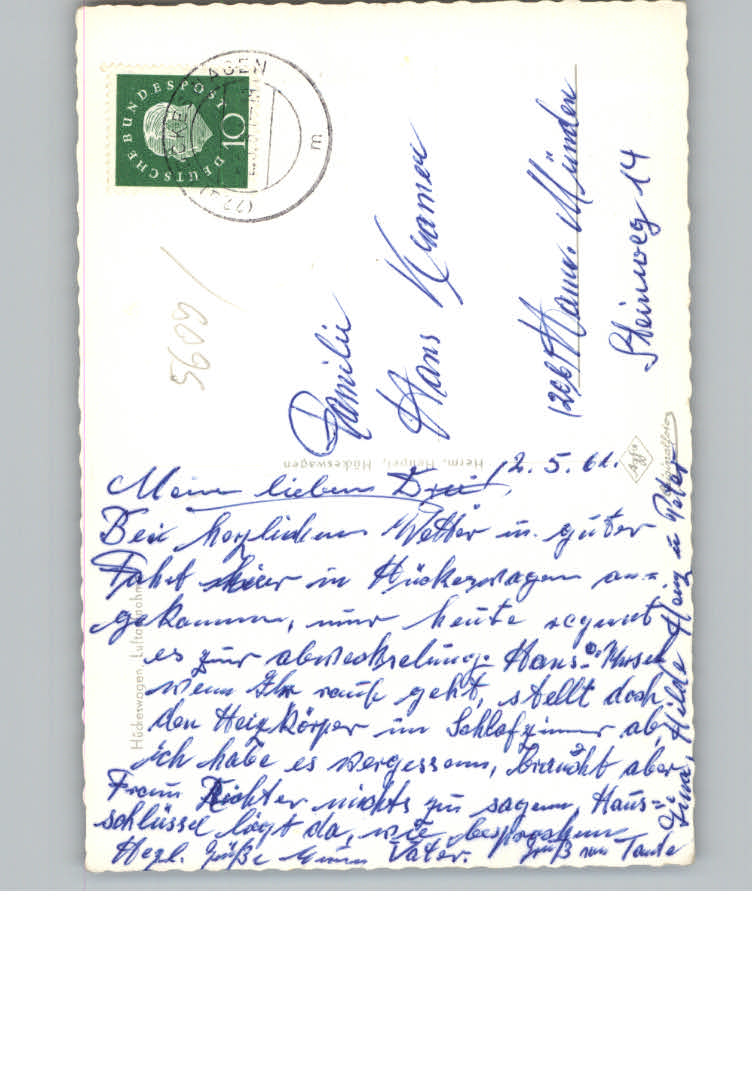 DEUTSCHE BUNDESPOST
10
HÜCKESWAGEN
(22a)
m
5609
Familie
Hans Kramer
Hann. Münden
Steinweg 14
Herm. Hückeswagen
Originalfoto
Hückeswagen, Luftaufnahme
12.5.61.
Meine lieben Drei!
Bei herzlichem Wetter u. guter
Fahrt hier in Hückeswagen an=
gekommen, nur heute regnet
es zur abwechselung. Hans-
wenn Ihr rauf geht, stellt doch
den Heizkörper im Schlafzimmer ab,
ich habe es vergessen, braucht aber
Frau Richter nichts zu sagen, Haus=
schlüssel liegt da, wie besprochen
Herzl. Grüße Vater.
Gruß von Tante
Hilde Hanz u Peter